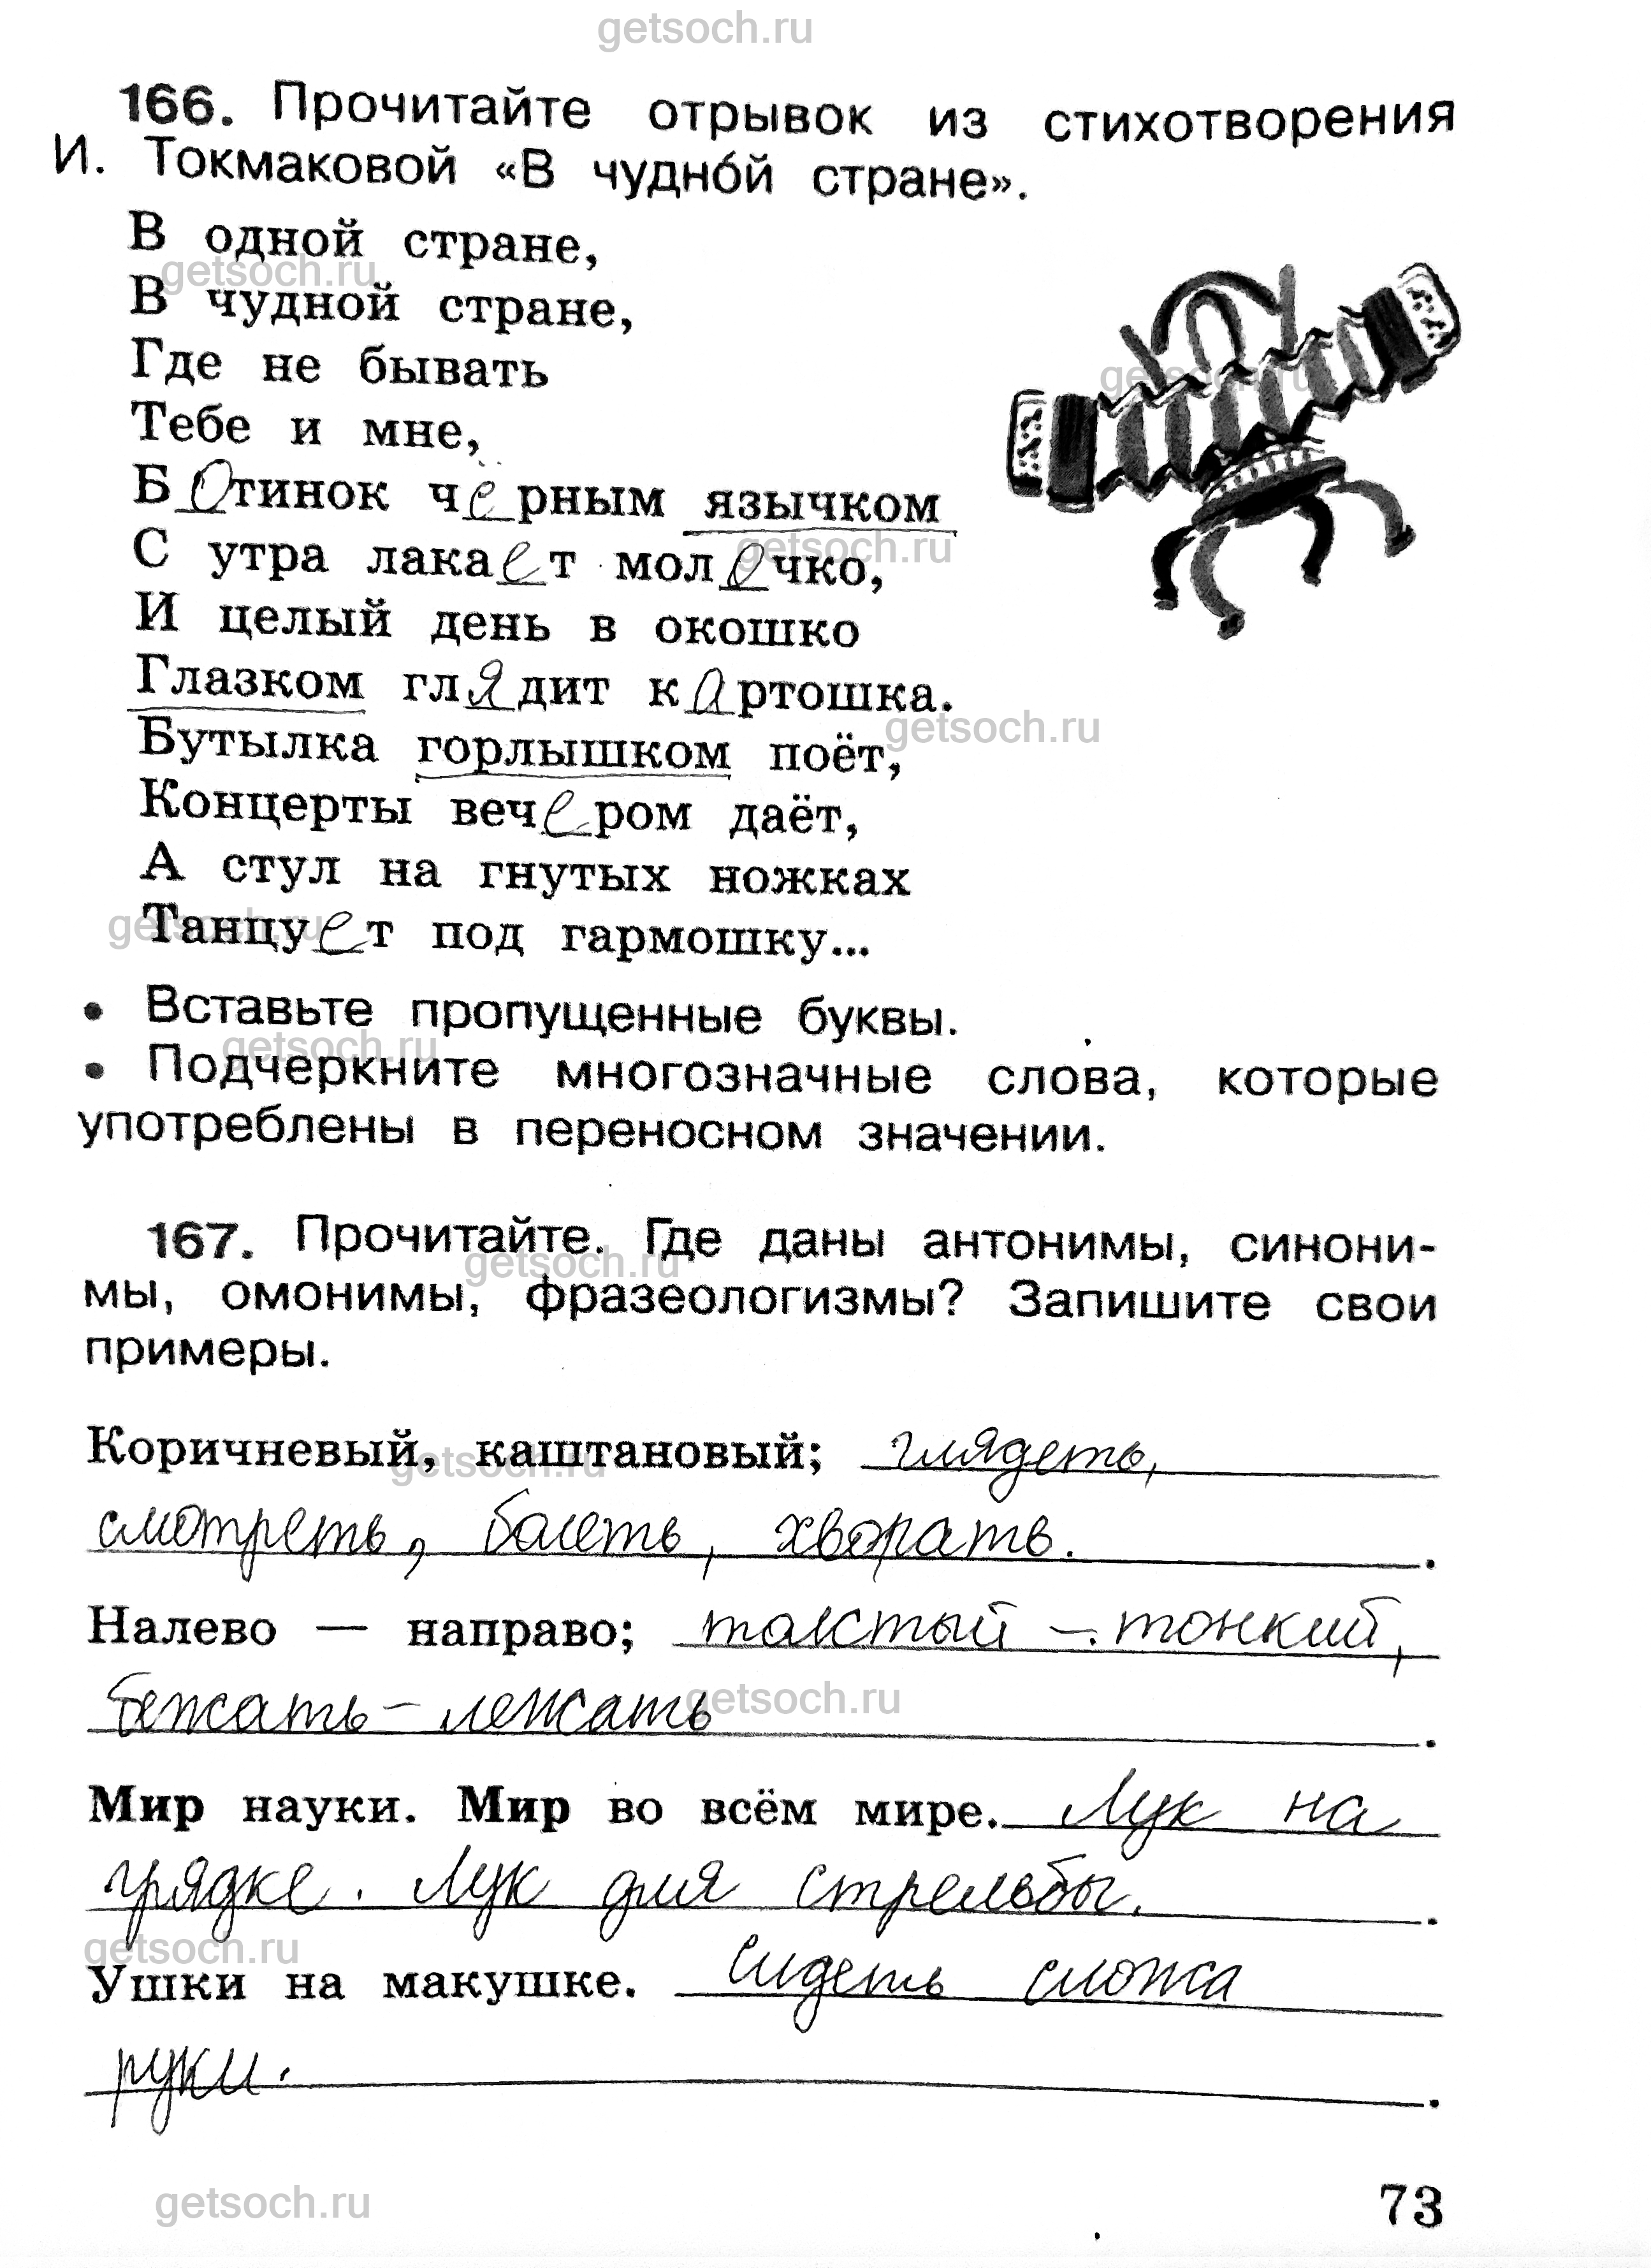 getsoch.ru
166. Прочитайте отрывок из стихотворения
И. Токмаковой «В чудно́й стране».
В одной стране,
getsoch.ru
В чудной стране,
Где не бывать
getsoch.ru
Тебе и мне,
Ботинок чёрным язычком
getsoch.ru
С утра лакает молочко,
И целый день в окошко
Глазком глядит картошка.
getsoch.ru
Бутылка горлышком поёт,
Концерты вечером даёт,
А стул на гнутых ножках
getsoch.ru
Танцует под гармошку...
• Вставьте пропущенные буквы.
getsoch.ru
• Подчеркните многозначные слова, которые
употреблены в переносном значении.
167. Прочитайте. Где даны антонимы, синони-
getsoch.ru
мы, омонимы, фразеологизмы? Запишите свои
примеры.
Коричневый, каштановый; глядеть,
getsoch.ru
смотреть, болеть, хворать.
Налево — направо; толстый – тонкий,
бежать – лежать.
getsoch.ru
Мир науки. Мир во всём мире. Лук на
грядке. Лук для стрельбы.
getsoch.ru
Ушки на макушке. Сидеть сложа
руки.
getsoch.ru
73